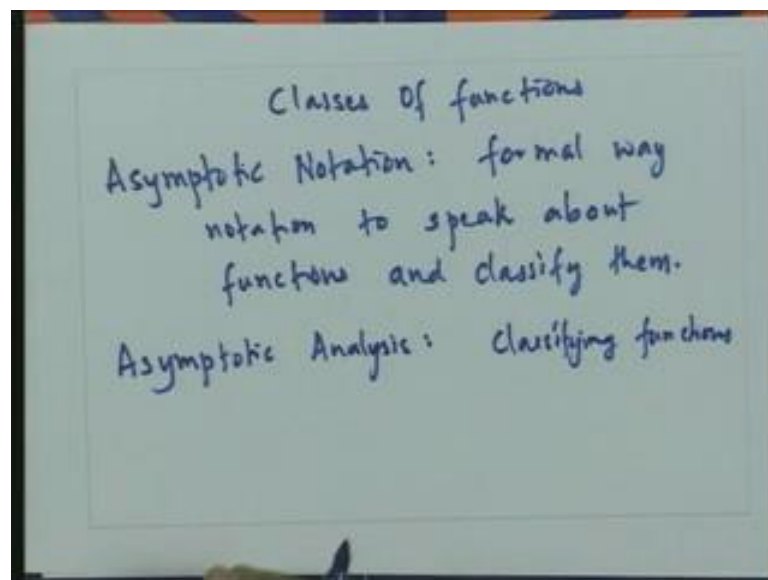 Classes Of functions
Asymptotic Notation: formal way
notation to speak about
functions and classify them.
Asymptotic Analysis: Classifying functions